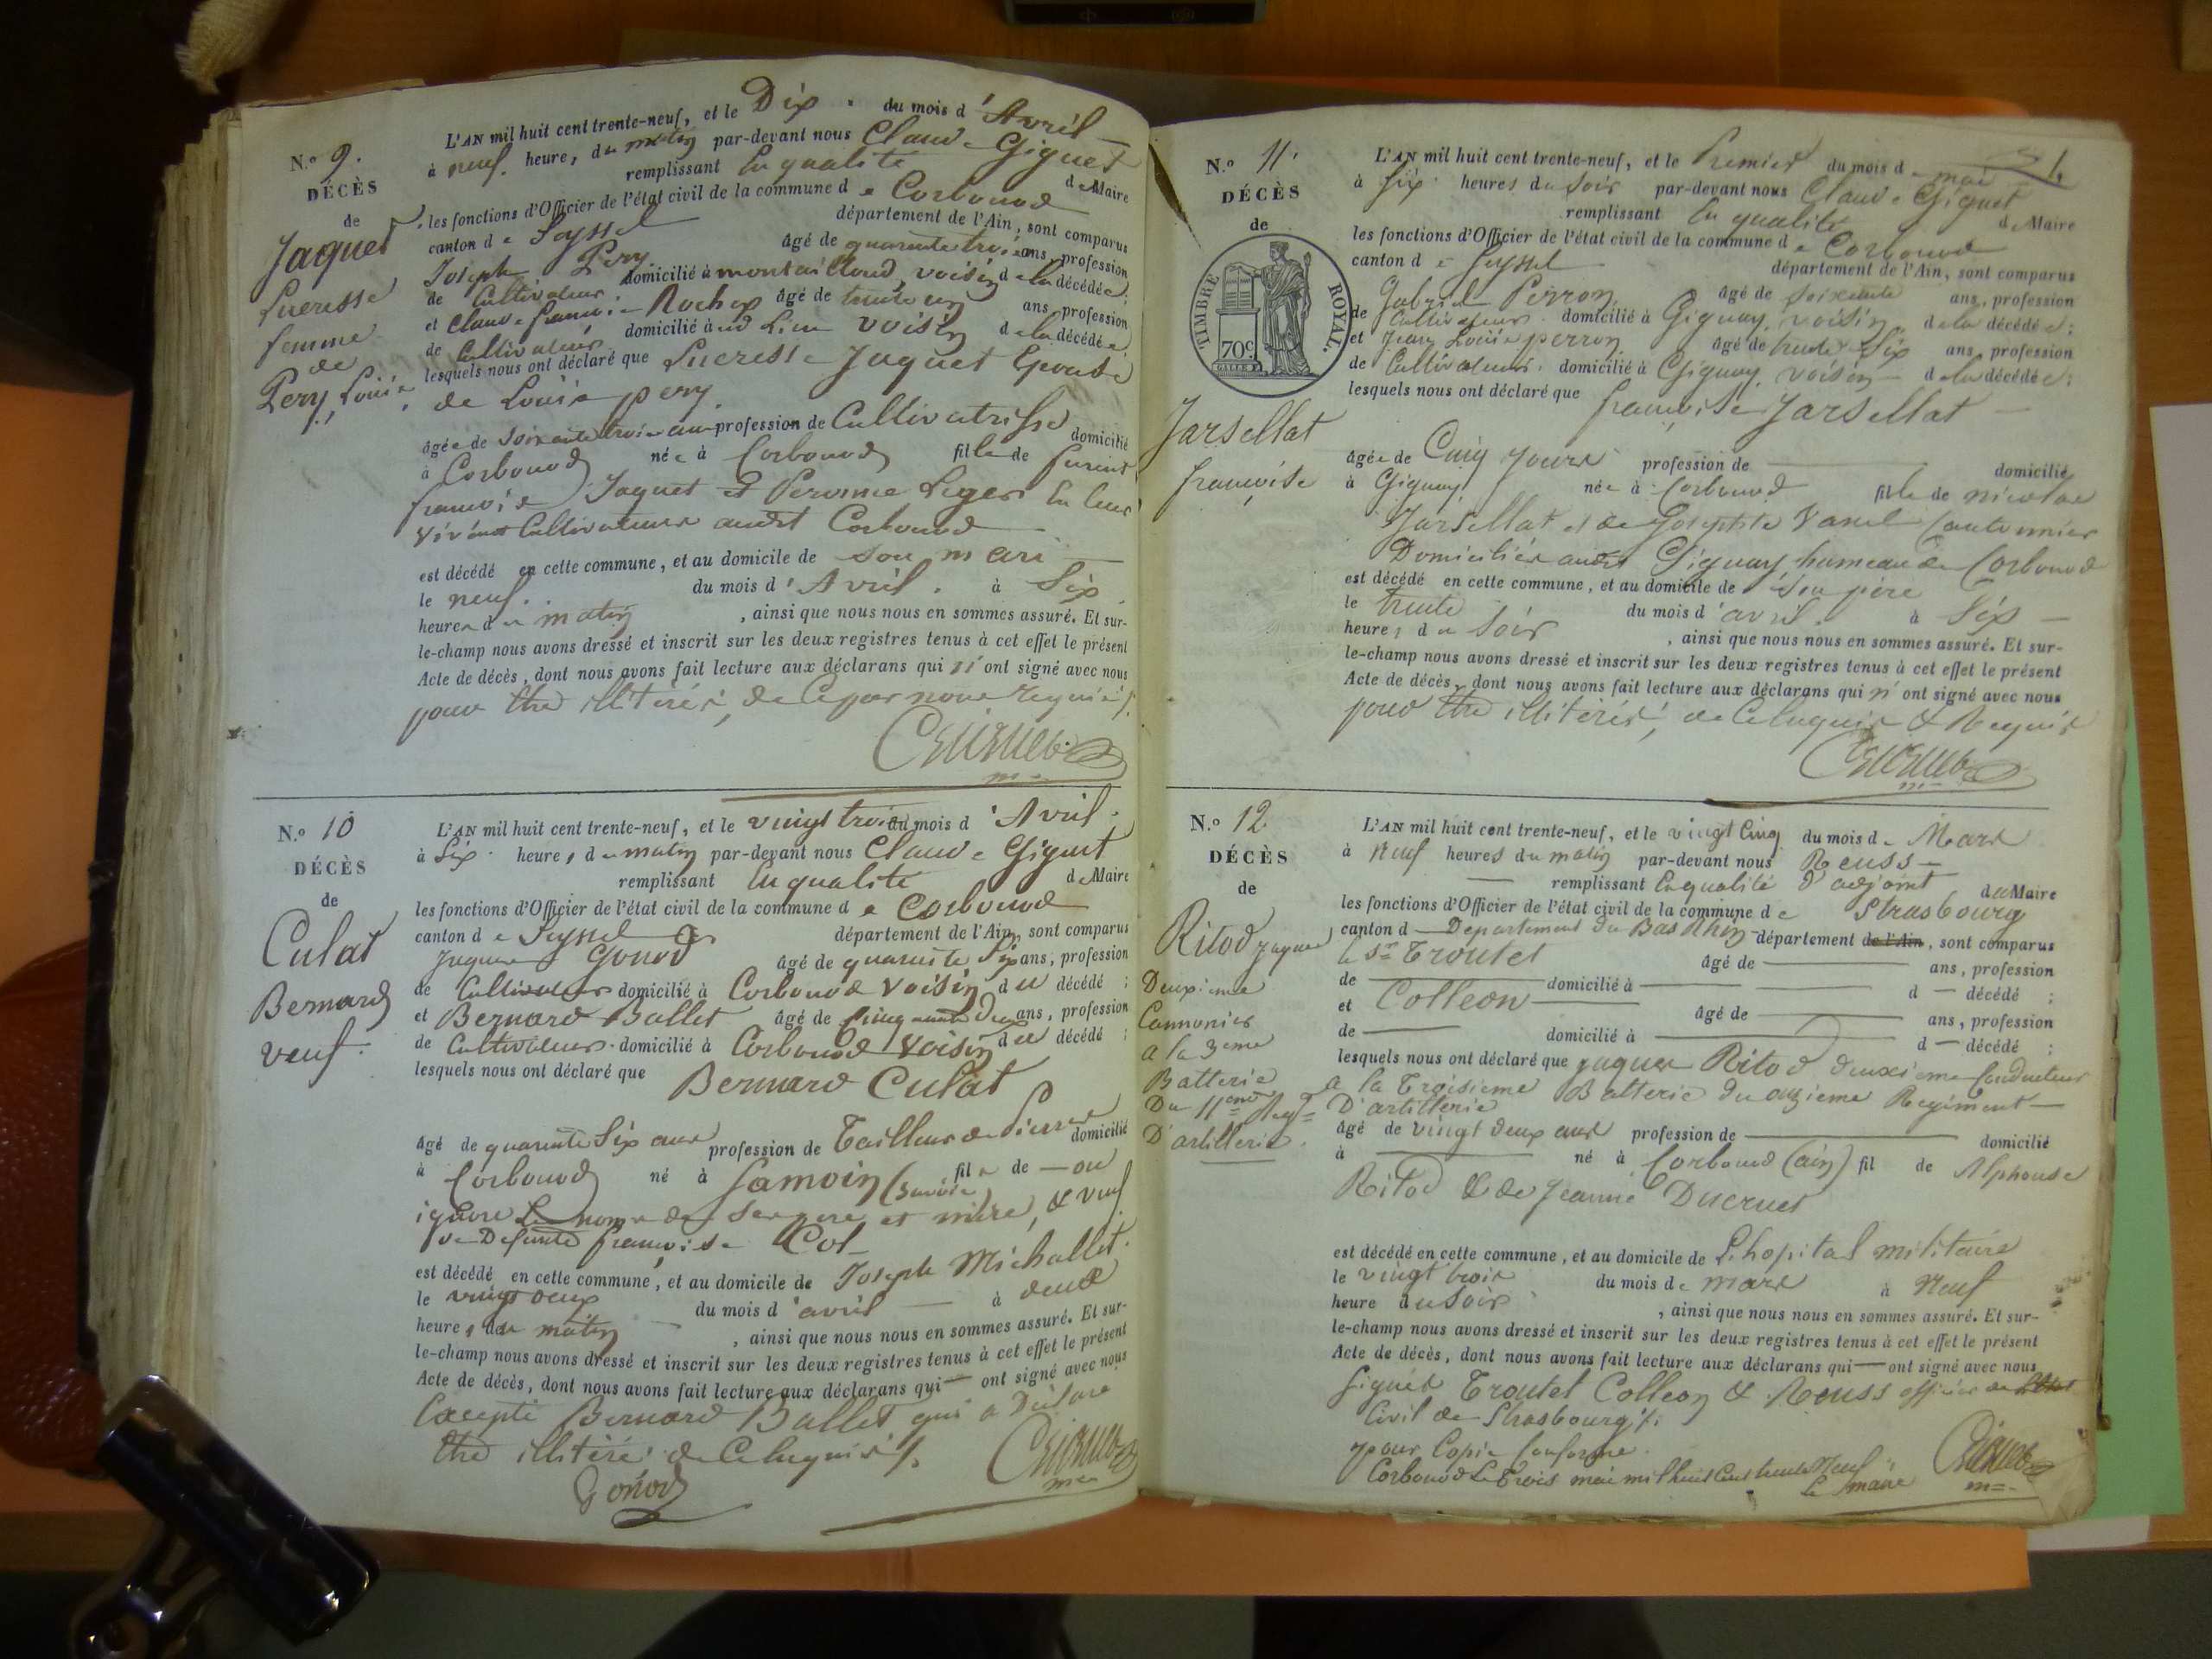 N.º 9.
DÉCÈS
de
Jaquet
Lucresse
femme
de
Pery, Louis
L'AN mil huit cent trente-neuf, et le Dix du mois d'Avril
à neuf heure, du matin par-devant nous Claude Giguet
remplissant en qualité de Maire
les fonctions d'Officier de l'état civil de la commune de Corbonod
canton de Seyssel département de l'Ain, sont comparus
Joseph Pery âgé de quarante trois ans, profession
de Cultivateur domicilié à montailloud, voisin de la décédée;
et Claude françois Rochex âgé de trente un ans, profession
de Cultivateur domicilié à ud Lieu voisin de la décédée,
lesquels nous ont déclaré que Lucresse Jaquet Epouse
de Louis pery
âgée de soixante trois ans profession de Cultivatrisse domicilié
à Corbonod née à Corbonod fille de furent
françois Jaquet et Peronne Leger en leur
vivant Cultivateurs audit Corbonod
est décédé en cette commune, et au domicile de son mari
le neuf du mois d'Avril à Six
heures du matin, ainsi que nous nous en sommes assuré. Et sur-
le-champ nous avons dressé et inscrit sur les deux registres tenus à cet effet le présent
Acte de décès, dont nous avons fait lecture aux déclarans qui n'ont signé avec nous
pour être illitéré, de Ce par nous requis
N.º 10
DÉCÈS
de
Culat
Bernard
veuf
L'AN mil huit cent trente-neuf, et le vingt trois du mois d'Avril
à Six heure, du matin par-devant nous Claude Giguet
remplissant en qualité de Maire
les fonctions d'Officier de l'état civil de la commune de Corbonod
canton de Seyssel département de l'Ain, sont comparus
Jaques Gonod âgé de quarante Six ans, profession
de Cultivateur domicilié à Corbonod voisin du décédé;
et Bernard Ballet âgé de Cinquante Deux ans, profession
de Cultivateur domicilié à Corbonod Voisin du décédé;
lesquels nous ont déclaré que
Bernard Culat
âgé de quarante Six ans profession de Tailleur de Pierre domicilié
à Corbonod né à Samoin (Savoie) fils de — on
ignore Le nom de Ses pere et mère, & veuf
de Defunte françoise Cot
est décédé en cette commune, et au domicile de Joseph Michallet
le vingt deux du mois d'avril à deux
heures du matin, ainsi que nous nous en sommes assuré. Et sur-
le-champ nous avons dressé et inscrit sur les deux registres tenus à cet effet le présent
Acte de décès, dont nous avons fait lecture aux déclarans qui — ont signé avec nous
Excepté Bernard Ballet qui a Déclaré
être illitéré de Ce luquis
Gonod
N.º 11.
DÉCÈS
de
TIMBRE ROYAL.
70c
Jarsellat
françoise
L'AN mil huit cent trente-neuf, et le Premier du mois de mai
à Six heures du soir par-devant nous Claude Giguet
remplissant en qualité de Maire
les fonctions d'Officier de l'état civil de la commune de Corbonod
canton de Seyssel département de l'Ain, sont comparus
Gabriel Perron âgé de soixante ans, profession
de Cultivateur domicilié à Gignay, voisin de la décédée;
et Jean Louis perron âgé de trente Six ans, profession
de Cultivateur domicilié à Gignay voisin de la décédée;
lesquels nous ont déclaré que
françoise Jarsellat
âgée de Cinq jours profession de — domicilié
à Gignay née à Corbonod fille de nicolas
Jarsellat et de Josephte Vanel Cantonnier
Domiciliés audit Gignay hameau de Corbonod
est décédé en cette commune, et au domicile de son père
le trente du mois d'avril à Six
heures du Soir, ainsi que nous nous en sommes assuré. Et sur-
le-champ nous avons dressé et inscrit sur les deux registres tenus à cet effet le présent
Acte de décès, dont nous avons fait lecture aux déclarans qui n'ont signé avec nous
pour être illitérés, de Ce luquis & Requis
N.º 12
DÉCÈS
de
Ritod jaques
Deuxieme
Cannonier
a la 3eme
Batterie
Du 11eme Regt
D'artillerie.
L'AN mil huit cent trente-neuf, et le vingt Cinq du mois de Mars
à Neuf heures du matin par-devant nous Reuss
remplissant En qualité d'adjoint du Maire
les fonctions d'Officier de l'état civil de la commune de Strasbourg
canton d — Departement du Bas Rhin département de l'Ain, sont comparus
le Sr Troutet âgé de — ans, profession
de — domicilié à — d — décédé;
et Colleon âgé de — ans, profession
de — domicilié à — d — décédé;
lesquels nous ont déclaré que jaques Ritod deuxieme Conducteur
a la Troisieme Batterie du onzieme Regiment
D'artillerie
âgé de vingt deux ans profession de — domicilié
à — né à Corbonod (ain) fil de Alphonse
Ritod & de Jeanne Ducruet
est décédé en cette commune, et au domicile de L'hopital militaire
le vingt trois du mois de mars à Neuf
heure du Soir, ainsi que nous nous en sommes assuré. Et sur-
le-champ nous avons dressé et inscrit sur les deux registres tenus à cet effet le présent
Acte de décès, dont nous avons fait lecture aux déclarans qui — ont signé avec nous
Signés Troutet Colleon & Reuss officier de L'état
Civil de Strasbourg
pour Copie Conforme
Corbonod Le Trois mai mil huit Cent trente Neuf
Le maire